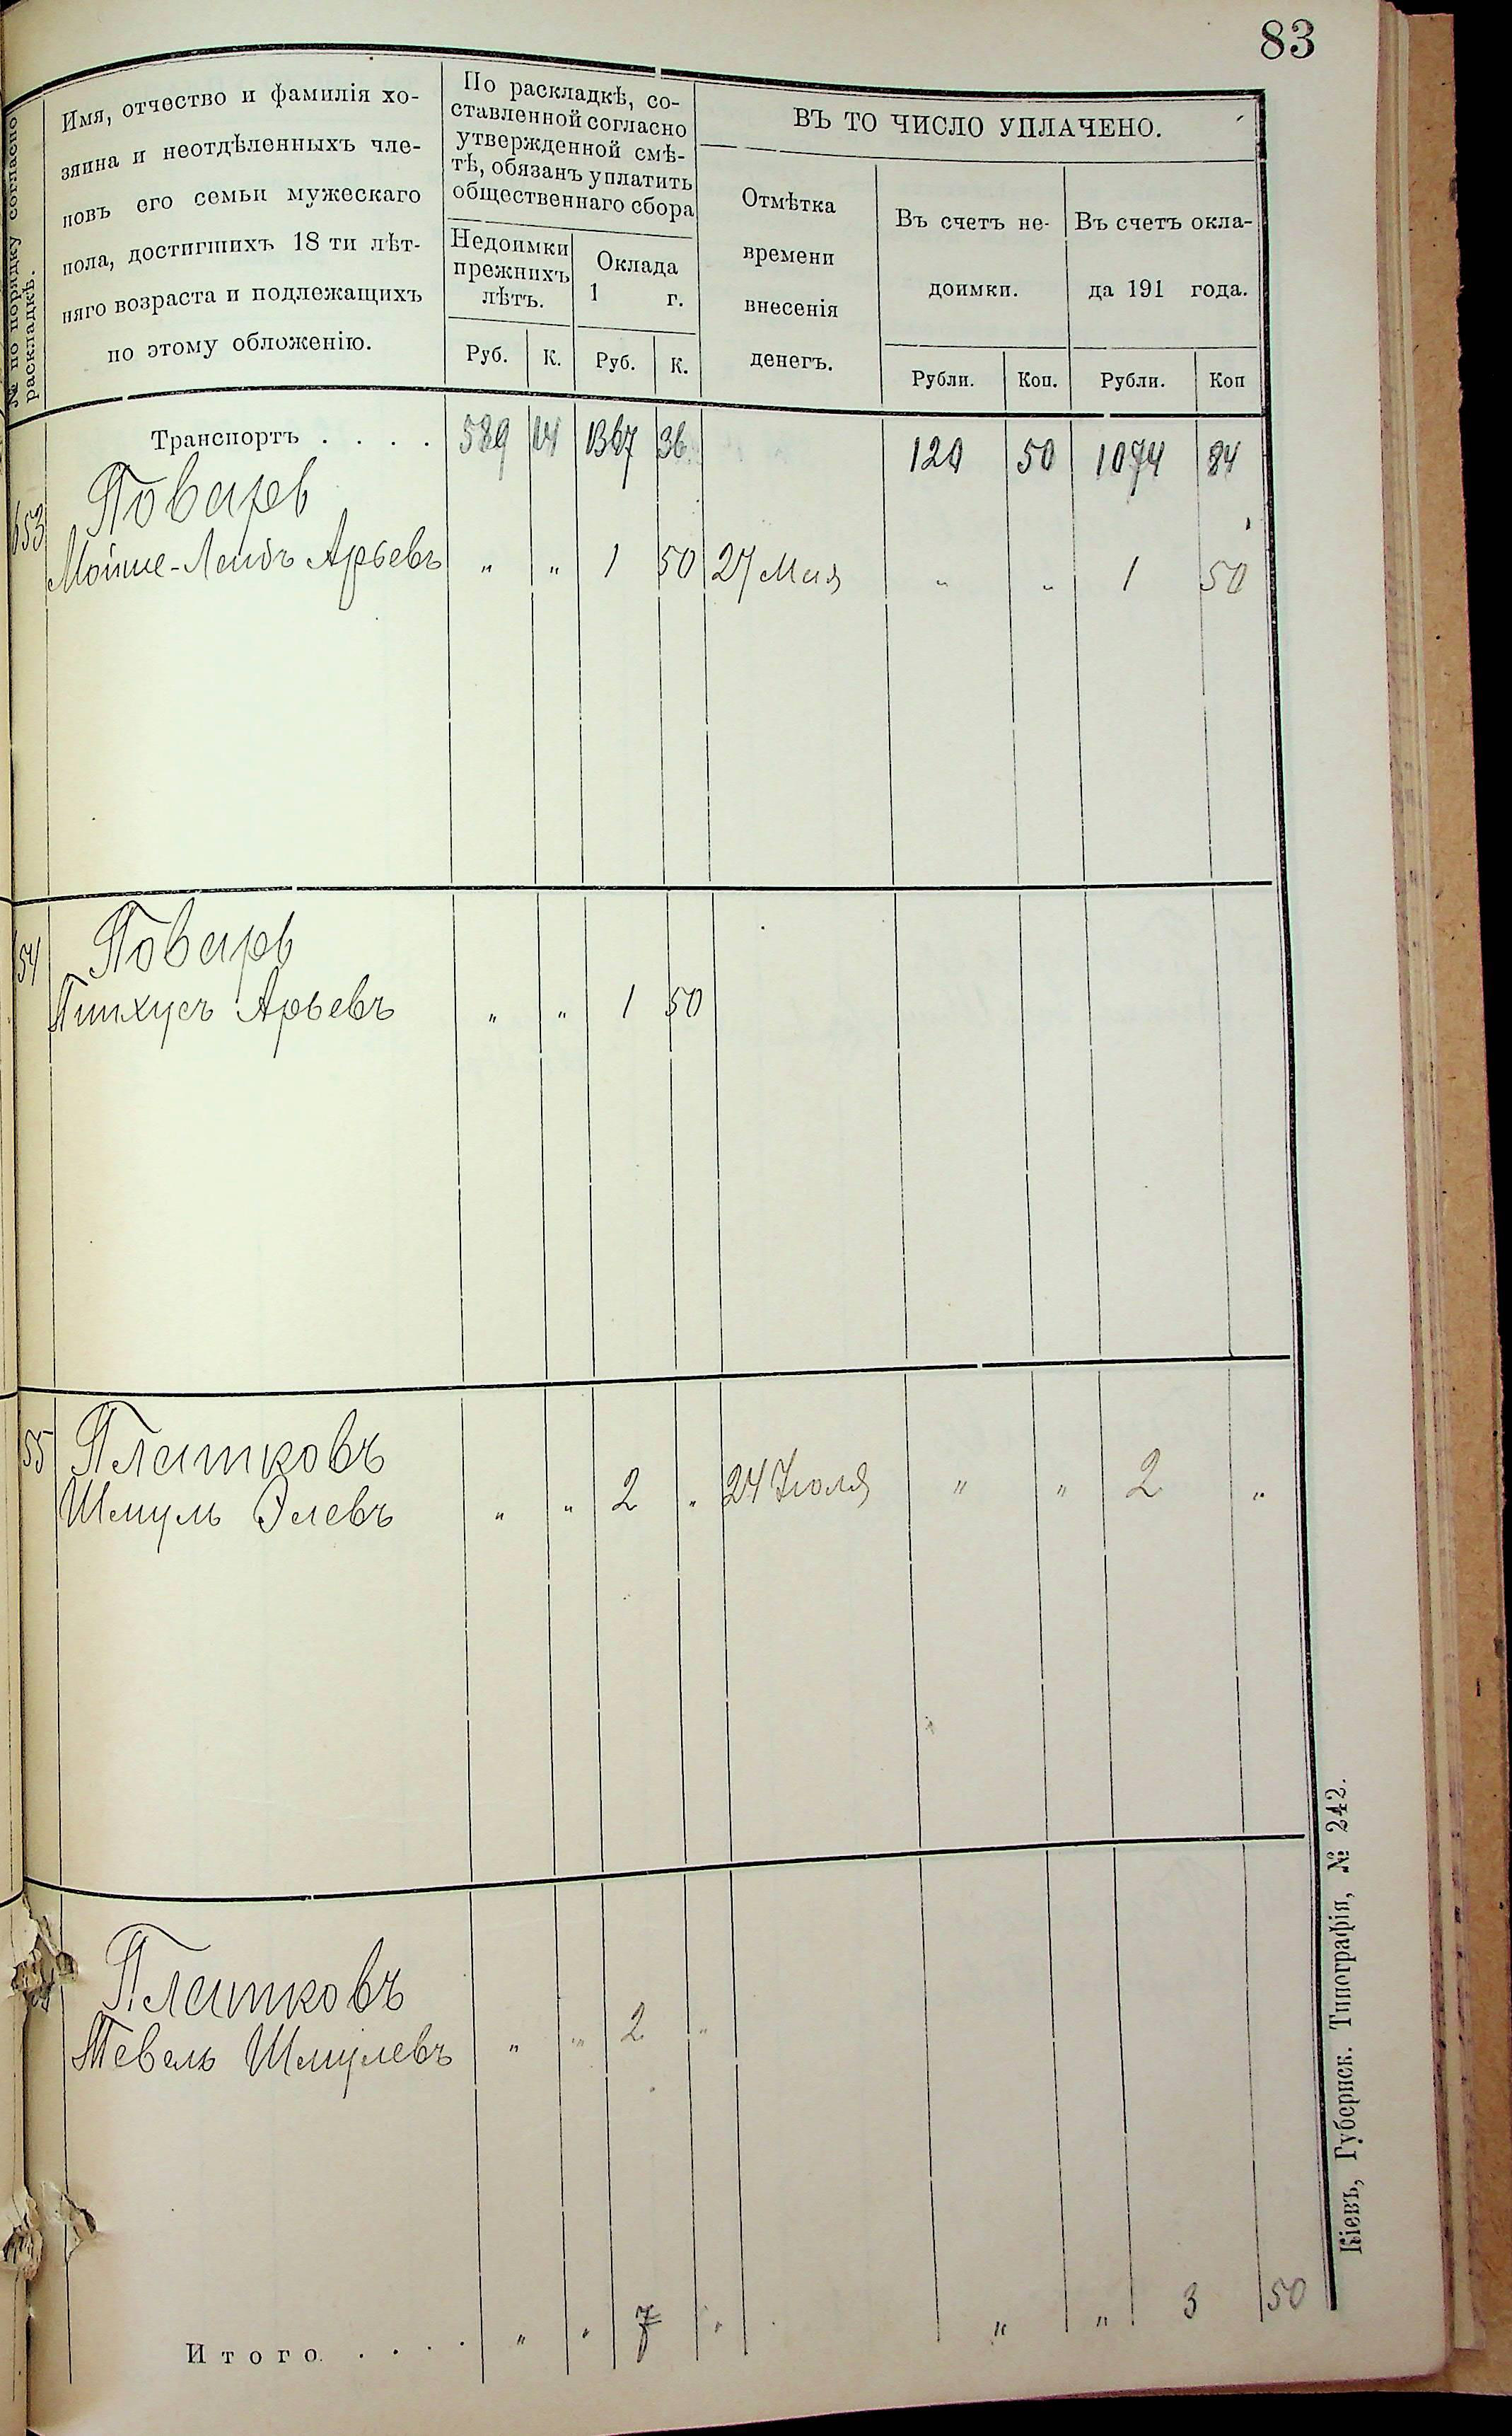 83
№ по порядку согласно
раскладкѣ.
Имя, отчество и фамилія хо-
зяина и неотдѣленныхъ чле-
новъ его семьи мужескаго
пола, достигшихъ 18 ти лѣт-
няго возраста и подлежащихъ
по этому обложенію.
По раскладкѣ, со-
ставленной согласно
утвержденной смѣ-
тѣ, обязанъ уплатить
общественнаго сбора
Недоимки
прежнихъ
лѣтъ.
Оклада
1 г.
Руб. К. Руб. К.
ВЪ ТО ЧИСЛО УПЛАЧЕНО.
Отмѣтка
времени
внесенія
денегъ.
Въ счетъ не-
доимки.
Въ счетъ окла-
да 191 года.
Рубли. Коп. Рубли. Коп
Транспортъ . . . . 36 50 84
653 Поваръ
Мойше-Лейбъ Арьевъ " " 1 50 27 Мая " " 1 50
54 Поваръ
Пинхусъ Арьевъ " " 1 50
55 Платковъ
Шмуль Элевъ " " 2 " 24 Іюля " " 2 "
Платковъ
Тевель Шмулевъ " " 2 "
Итого . . . . " " 7 " " " 3 50
Кіевъ, Губернск. Типографія, № 242.